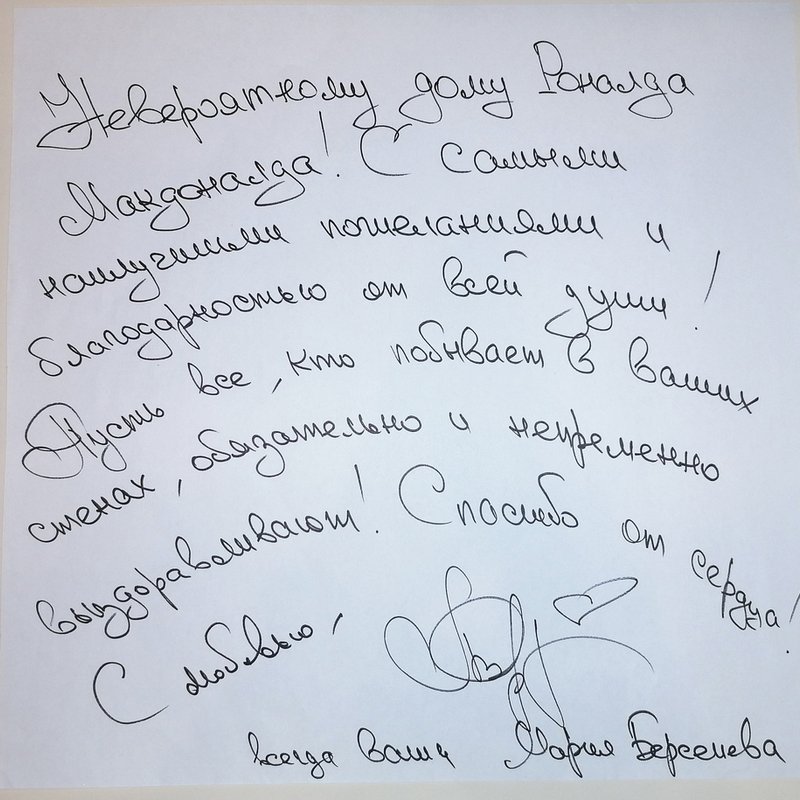 Невероятному дому Роналда
Макдоналда! С самыми
наилучшими пожеланиями и
благодарностью от всей души!
Пусть все, кто побывает в ваших
стенах, обязательно и непременно
выздоравливают! Спасибо от сердца!
С любовью,
всегда ваша Мария Берсенева